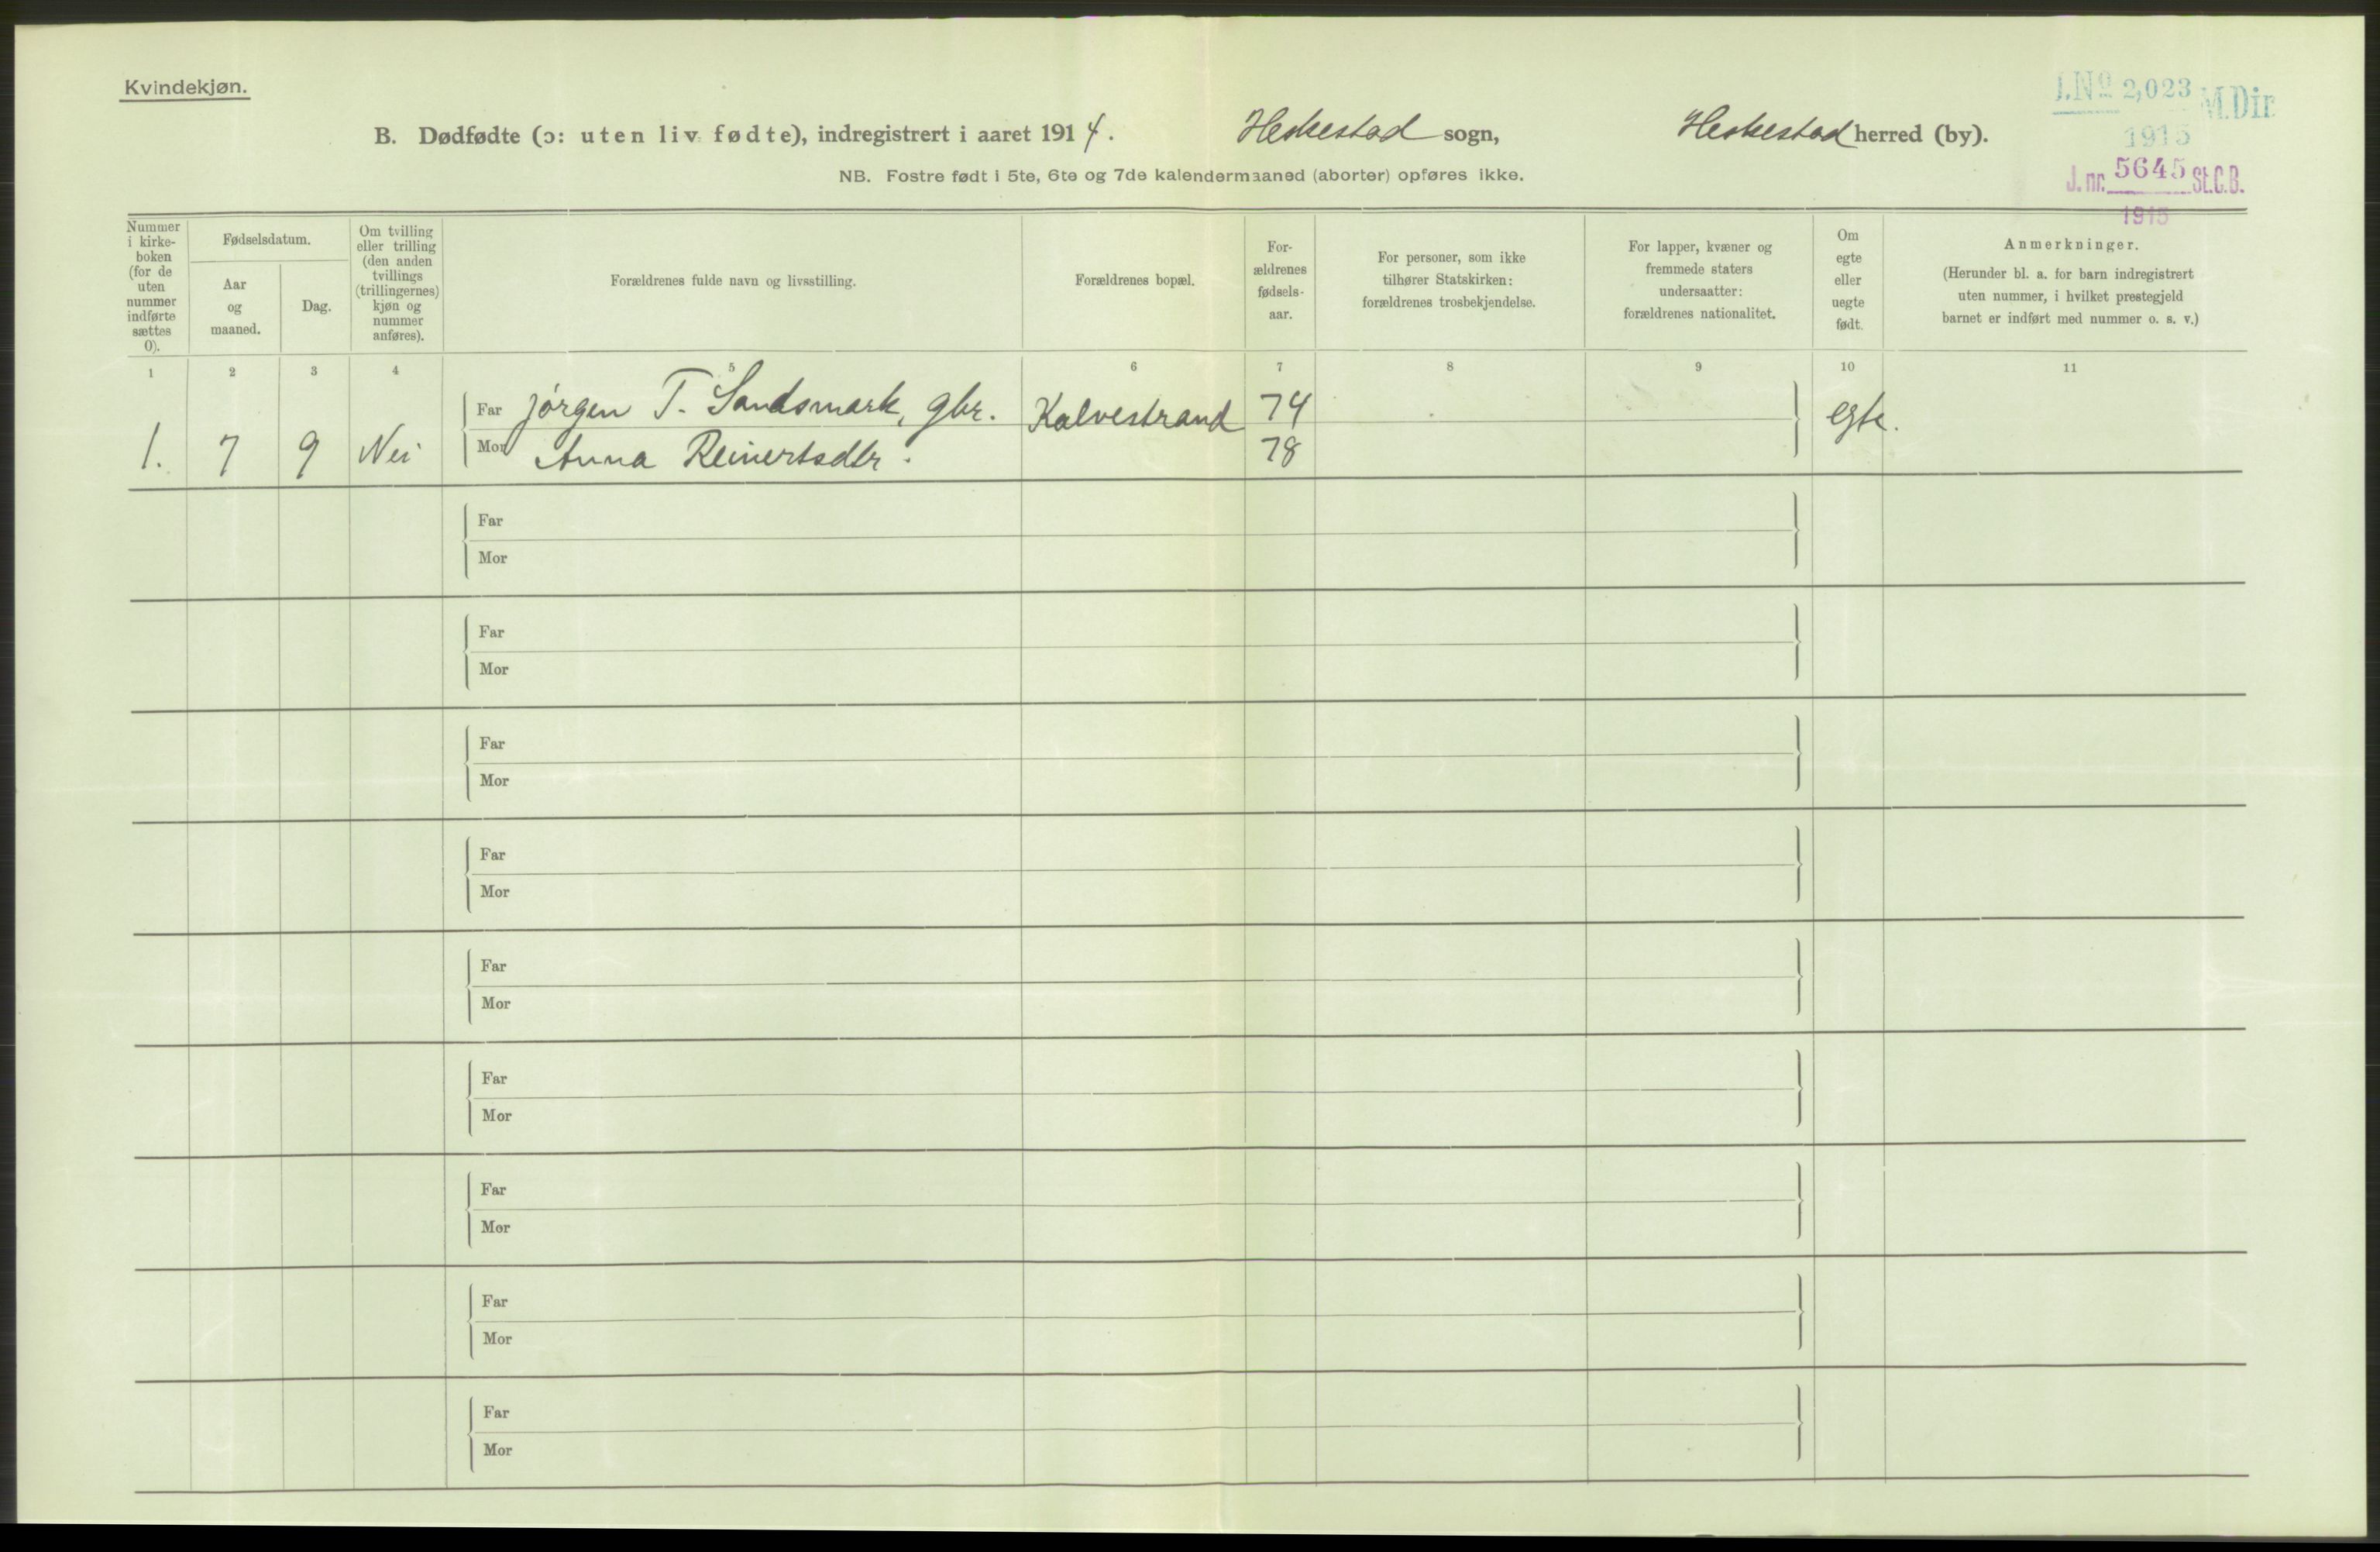 Kvindekjøn.
J.Nº 2,023 M.Dir
1915
B. Dødfødte (ɔ: uten liv fødte), indregistrert i aaret 1914. Heskestad sogn, Heskestad herred (by).
NB. Fostre født i 5te, 6te og 7de kalendermaaned (aborter) opføres ikke.
J. nr. 5645 St.C.B.
1915
Nummer
i kirke-
boken
(for de
uten
nummer
indførte
sættes
0).
Fødselsdatum.
Aar
og
maaned.
Dag.
Om tvilling
eller trilling
(den anden
tvillings
(trillingernes)
kjøn og
nummer
anføres).
Forældrenes fulde navn og livsstilling.
Forældrenes bopæl.
For-
ældrenes
fødsels-
aar.
For personer, som ikke
tilhører Statskirken:
forældrenes trosbekjendelse.
For lapper, kvæner og
fremmede staters
undersaatter:
forældrenes nationalitet.
Om
egte
eller
uegte
født.
Anmerkninger.
(Herunder bl. a. for barn indregistrert
uten nummer, i hvilket prestegjeld
barnet er indført med nummer o. s. v.)
1 2 3 4 5 6 7 8 9 10 11
Far Jørgen T. Sandsmark, gbr. Kalvestrand 74 egte.
1. 7 9 Nei Mor Anna Reinertsdtr. 78
Far
Mor
Far
Mor
Far
Mor
Far
Mor
Far
Mor
Far
Mor
Far
Mor
Far
Mor
Far
Mor